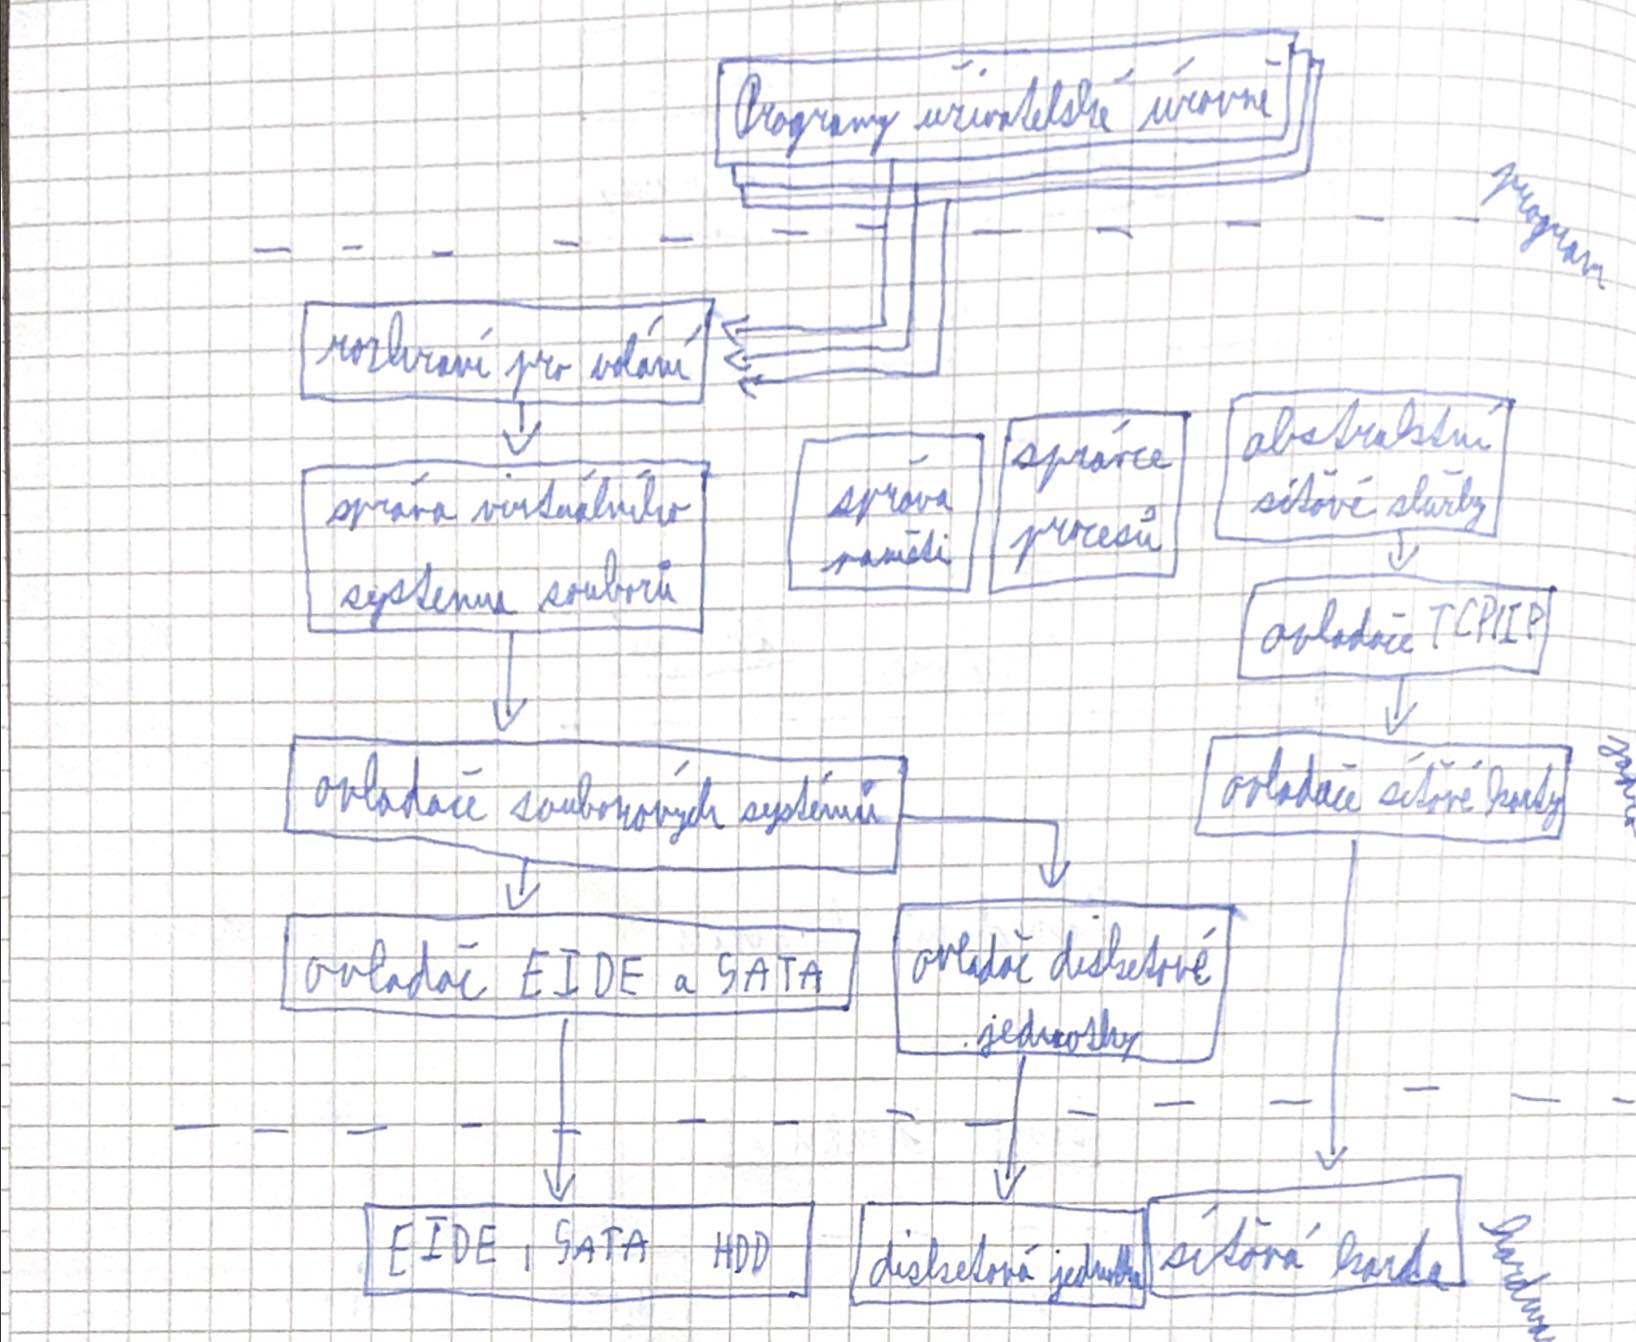 Programy uživatelské úrovně
program
rozhraní pro volání
správa virtuálního
systemu souborů
správa
paměti
správce
procesů
abstraktní
síťové služby
ovladače TCP/IP
ovladače souborových systémů
ovladače síťové karty
ovladač EIDE a SATA
ovladač disketové
jednotky
EIDE, SATA HDD
disketová jednotka
síťová karta